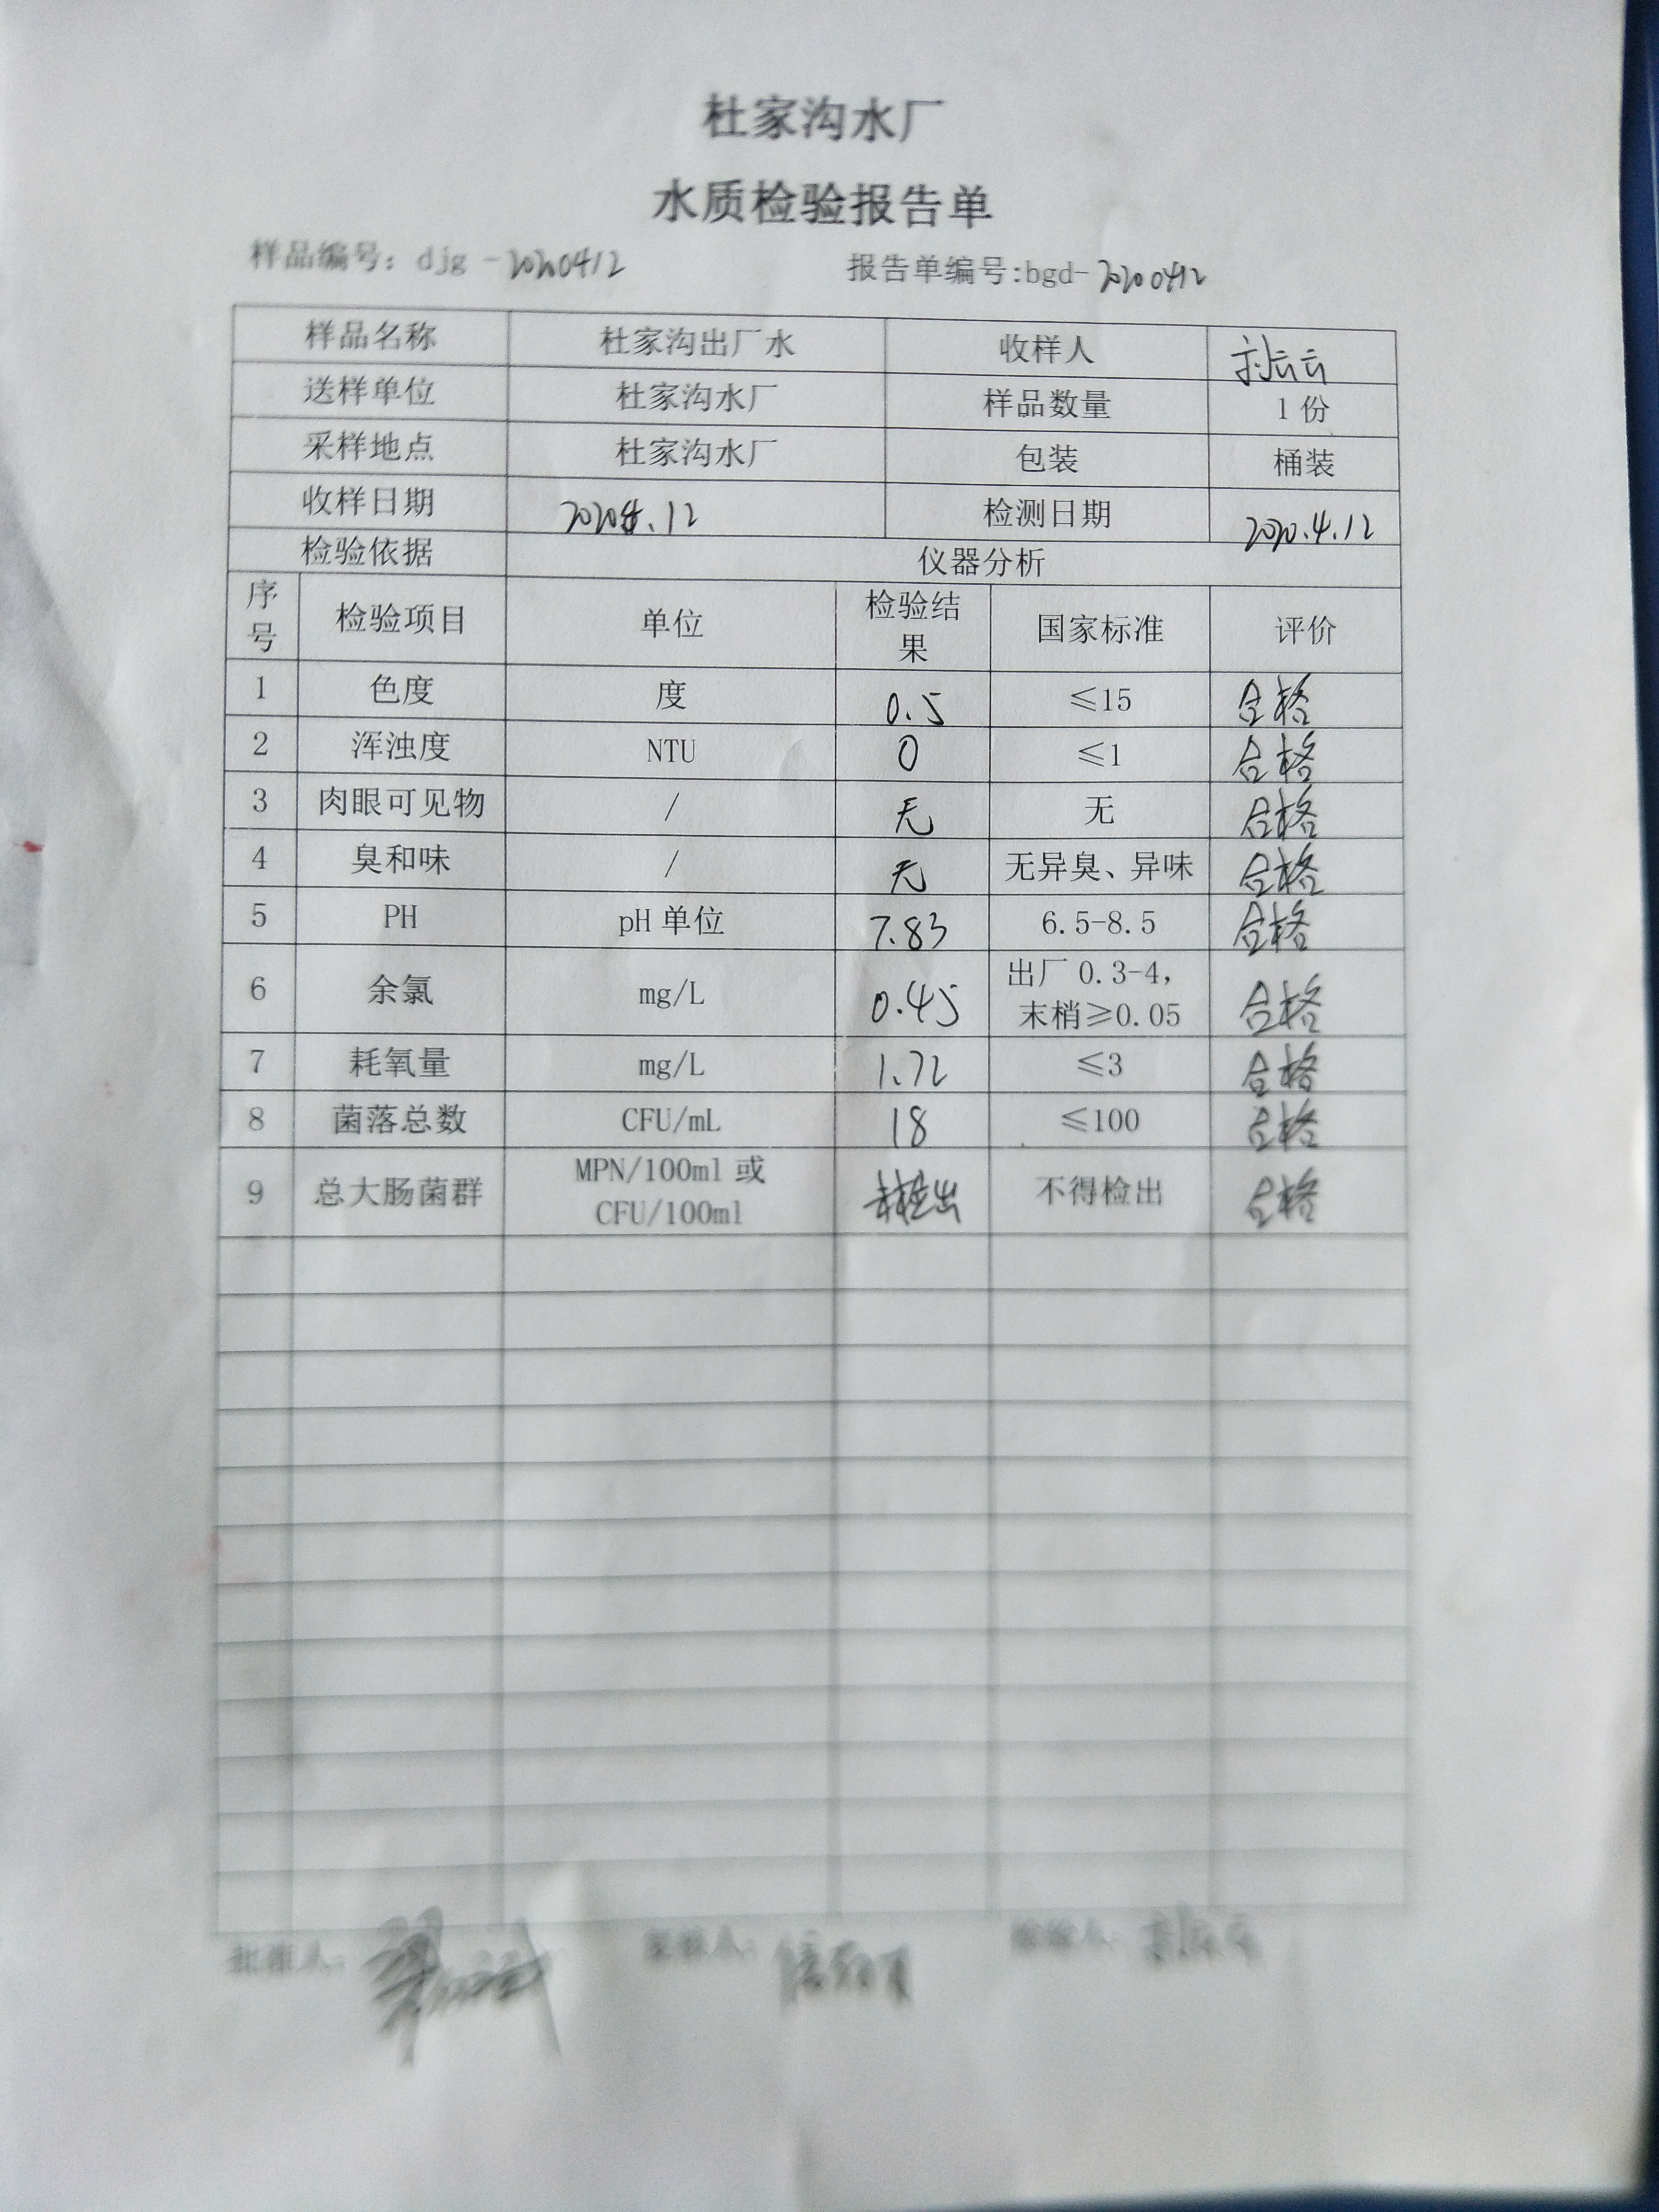 杜家沟水厂
水质检验报告单
样品编号：djg-20200412 报告单编号:bgd-20200412
样品名称 杜家沟出厂水 收样人
送样单位 杜家沟水厂 样品数量 1份
采样地点 杜家沟水厂 包装 桶装
收样日期 2020.4.12 检测日期 2020.4.12
检验依据 仪器分析
序号 检验项目 单位 检验结果 国家标准 评价
1 色度 度 0.5 ≤15 合格
2 浑浊度 NTU 0 ≤1 合格
3 肉眼可见物 / 无 无 合格
4 臭和味 / 无 无异臭、异味 合格
5 PH pH单位 7.83 6.5-8.5 合格
6 余氯 mg/L 0.45 出厂0.3-4，末梢≥0.05 合格
7 耗氧量 mg/L 1.72 ≤3 合格
8 菌落总数 CFU/mL 18 ≤100 合格
9 总大肠菌群 MPN/100ml或CFU/100ml 未检出 不得检出 合格
批准人： 复核人： 检验人：